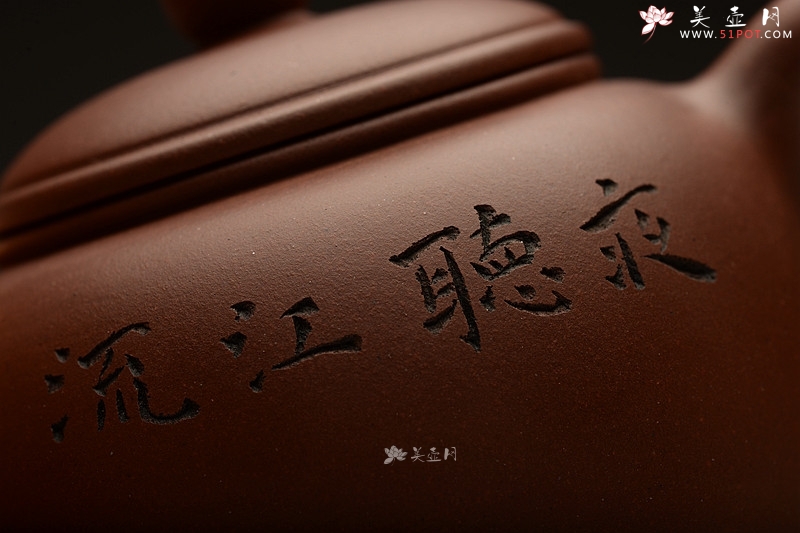 美壶网
WWW.51POT.COM
夜聽江流
美壶网